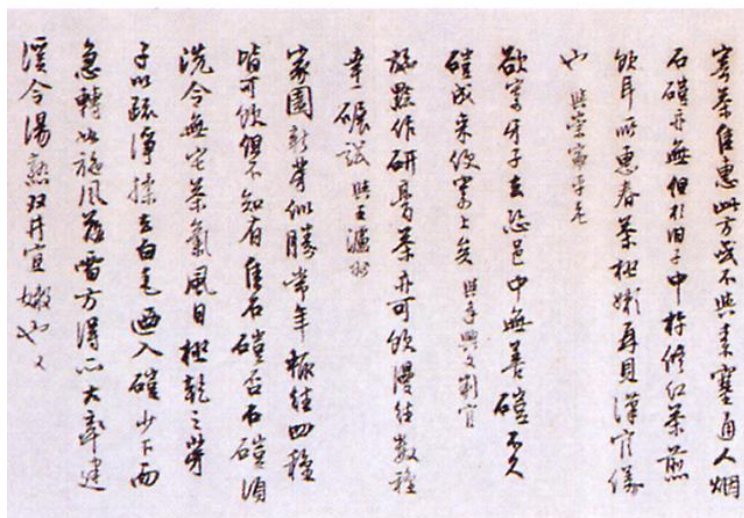 寄茶佳惠此方不與秦塞通人烟
石磑亦無但於旧子中修江茶煎
飲耳所惠春茶極嫩再見漢官儀
也 與
欲寄牙子去恐邑中無善磑不久
磑成末便寄上矣 與判官
施黔作研膏茶亦可飲謾往數種
幸一碾試 與王瀘州
家園新芽似勝常年輒往四種
皆可飲但不知有佳石磑否石磑須
洗令無它茶氣風日極乾之芽
子以疏淨揉去白毛入磑少下而
急轉如旋風落雪方得所大率建
溪令湯熟双井宜嫩也